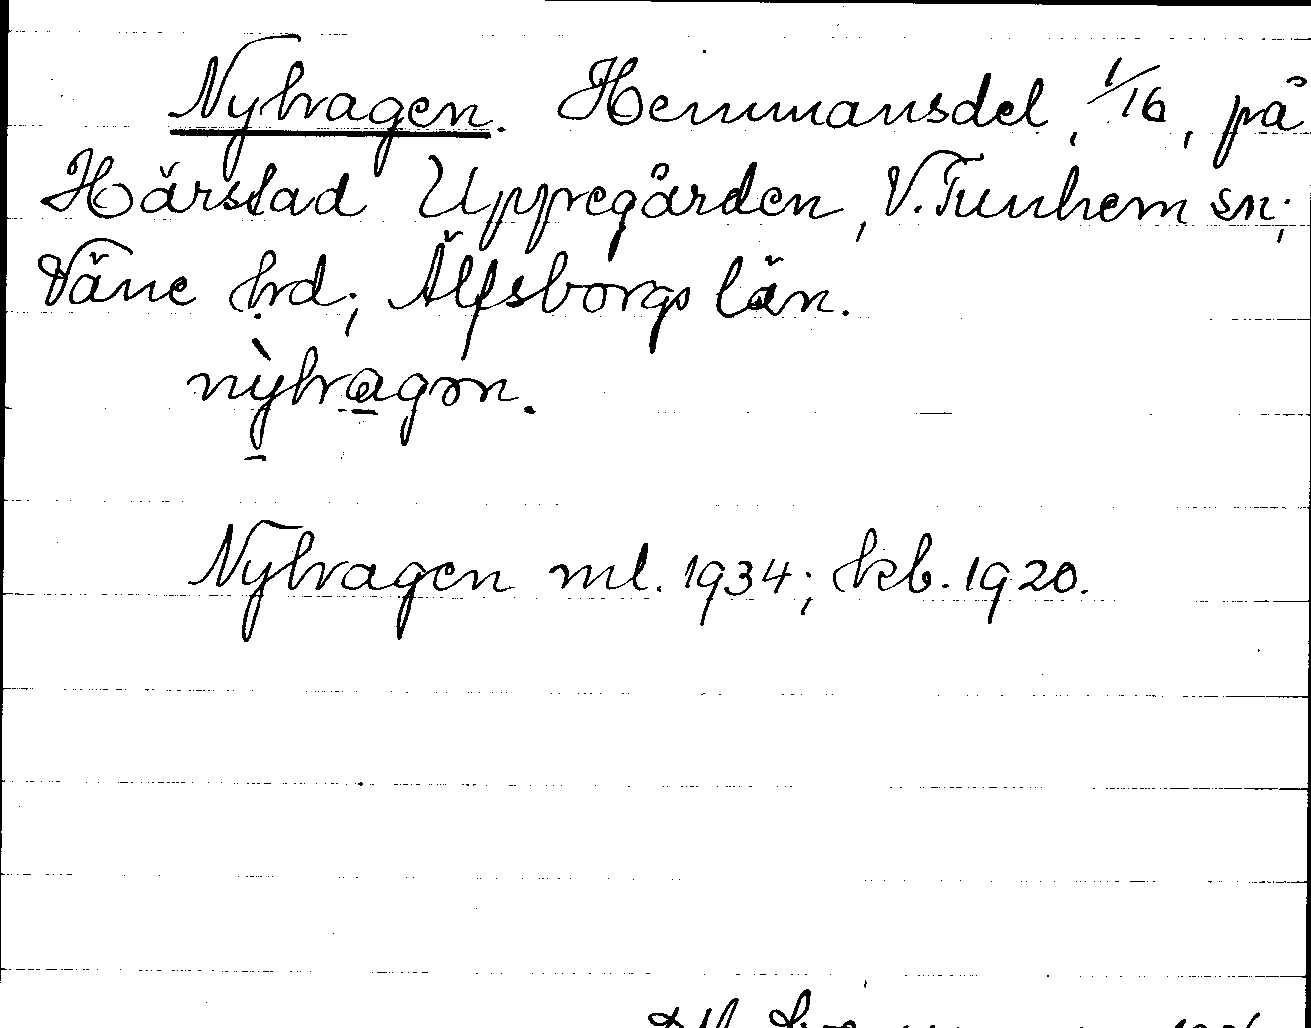 Nyhagen. Hemmansdel, 1/16, på
Härstad Uppregården, V. Tunhem sn;
Väne hrd; Älfsborgs län.
Nyhagen ml. 1934; kb. 1920.